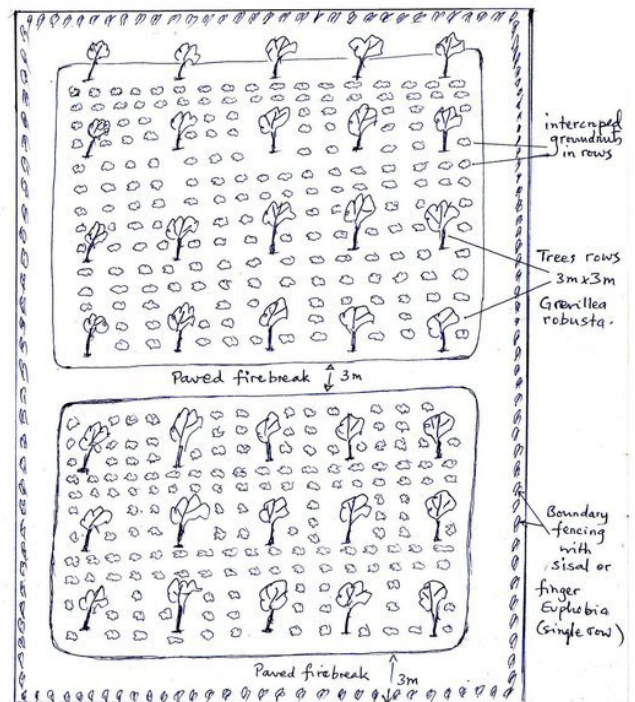 intercroped
groundnuts
in rows
Trees rows
3m x 3m
Grevillea
robusta.
Paved firebreak 3m
Boundary
fencing
with
sisal or
finger
Euphobia
(single row)
Paved firebreak 3m